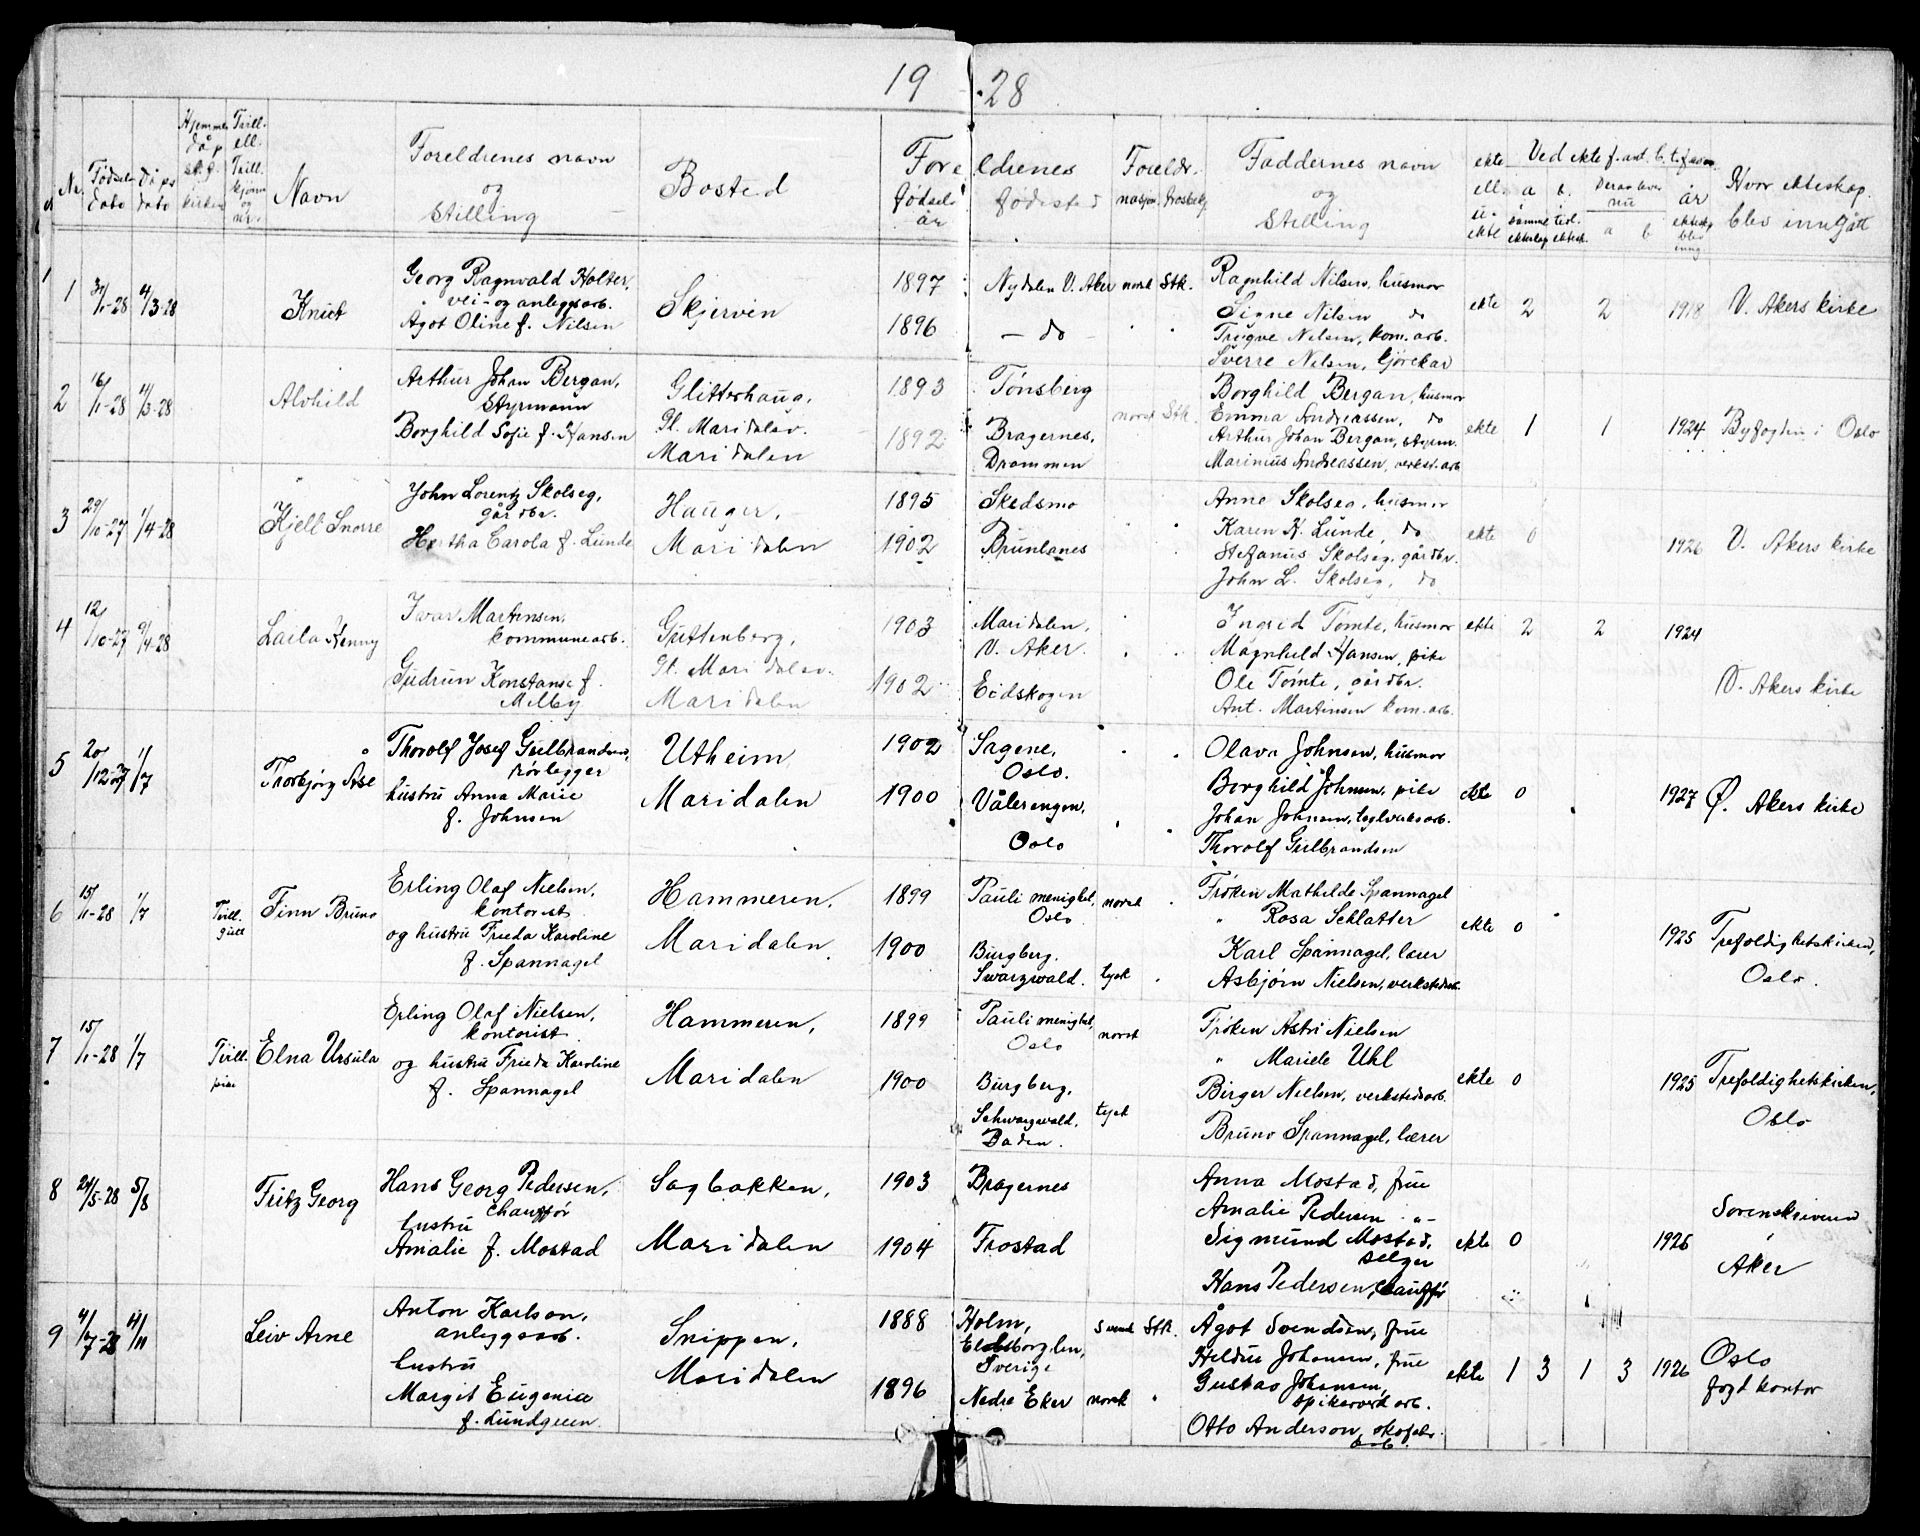 19 28
Nr. Fødsels dato Dåps dato Hjemme dåp st. f. kirken Tvill. ell. Trill. kjønn og nr. Navn Foreldrenes navn og stilling Bosted Foreldrenes fødselsår fødested Foreldr. nasjon. trosbekj. Faddernes navn og stilling ekte ell. u-ekte Ved ekte f. ant. b. t. f. av a samme ekteskap b. tidl. ektesk. Derav lever nu a b år ekteskap blev inng. Hvor ekteskap blev inngått
1 31/1-28 4/3-28 Knut Georg Ragnvald Holter, 1897 Nydalen V. Aker norsk Stk. Ragnhild Nilsen, husmor
vei- og anleggsarb. Skjerven Signe Nilsen do ekte 2 2 1918 V. Akers kirke
Agot Oline f. Nilsen 1896 — do Trygve Nilsen, kom. arb.
Sverre Nilsen, kjørekar
2 16/1-28 4/3-28 Alvhild Arthur Johan Bergan, Glitterhaug, 1893 Tønsberg Borghild Bergan, husmor
Styrmann Pl. Maridalsv. norsk Stk. Emma Andreassen, do
Borghild Sofie f. Hansen Maridalen 1892 Bragernes, Arthur Johan Bergan, styrm. ekte 1 1 1924 Byfogden i Oslo
Drammen Marinius Andreassen, verkst. arb.
3 29/10-27 1/4-28 Kjell Snorre John Lorentz Skolseg, Hauger, 1895 Skedsmo Anne Skolseg, husmor
gårdbr. Karen H. Lunde, do ekte 0 1926 V. Akers kirke
Hertha Carola f. Lunde Maridalen 1902 Brunlanes Stefanus Skolseg, gårdbr.
John L. Skolseg, do
4 12/10-27 9/4-28 Laila Henny Ivar Martinsen, 1903 Maridalen, Ingrid Tømte, husmor ekte 2 2 1924
kommunearb. Guttenberg, V. Aker Magnhild Hansen, pike
Gudrun Konstanse f. Pl. Maridalsv. 1902 Eidskogen Ole Tømte, gårdbr. V. Akers kirke
Melby Maridalen Ant. Martinsen kom. arb.
5 20/12-27 1/7 Torbjørg Åse Thorolf Josef Gulbrandsen, Utheim 1902 Sagene, Olava Johnsen, husmor
rørlegger Oslo. Borghild Johnsen, pike ekte 0 1927 Ø. Akers kirke
hustru Anna Marie Maridalen 1900 Vålerengen, Johan Johnsen, teglverksarb.
f. Johnsen Oslo Thorolf Gulbrandsen
6 15/1-28 1/7 Tvill. gutt Finn Bruno Erling Olaf Nielsen, Hammeren, 1899 Pauli menighet, norsk Frøken Mathilde Spannagel
kontorist Oslo " Rosa Schlatter ekte 0 1925 Trefoldighetskirken,
og hustru Frieda Karoline Maridalen 1900 Burgberg, Karl Spannagel, lærer Oslo.
f. Spannagel Swarzwald. tysk Asbjørn Nielsen, verkstedarb.
7 15/1-28 1/7 Tvill. pike Elna Ursula Erling Olaf Nielsen, Hammeren, 1899 Pauli menighet, norsk Frøken Astri Nielsen
kontorist Oslo " Mariele Uhl
og hustru Frieda Karoline Maridalen 1900 Burgberg, Birger Nielsen, verkstedsarb. ekte 0 1925 Trefoldighetskirken,
f. Spannagel Schwarzwald, tysk Bruno Spannagel, lærer Oslo
Baden.
8 24/5-28 5/8 Fritz Georg Hans Georg Pedersen, Sagbakken, 1903 Bragernes Anna Mostad, frue
Chauffør Amalie Pedersen " Sorenskriveren
hustru Sigmund Mostad, ekte 0 1926
Amalie f. Mostad Maridalen 1904 Frostad selger Aker
Hans Pedersen, Chauffør
9 4/7-28 4/11 Leiv Arne Anton Karlson, 1888 Holm, svensk Stk. Ågot Svendsen, frue
anleggsarb. Snippen, Elvsborglen, Sverige Heldur Johansen, frue Oslo
hustru Maridalen Gustav Johansen, ekte 1 3 1 3 1926 fogdkontor
Margit Eugenia 1896 Nedre Eker norsk spikerverk arb.
f. Lundgreen. Otto Anderson, skofabr. arb.